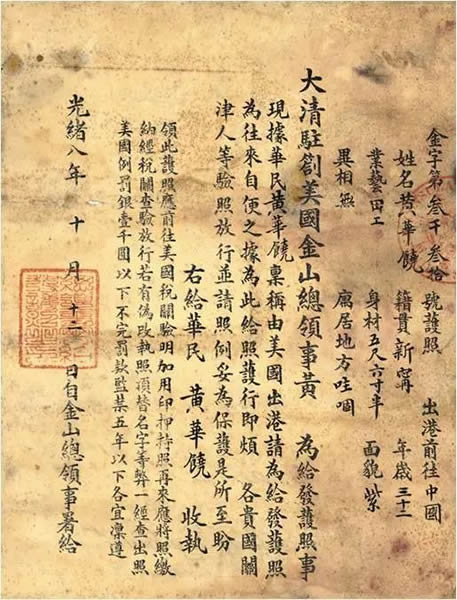 金字第叁千叁拾 號護照 出港前往中國
姓名黃華饒 籍貫新寗 年歲三十二
業藝田工 身材五尺六寸半 面貌紫
異相無 居地方哇嗰
大清駐劄美國金山總領事黃 為給發護照事
現據華民黃華饒稟稱由美國出港請為給發護照
為往來自便之據為此給照護行即煩 各貴國關
津人等驗照放行並請照例妥為保護是所至盼
右給華民 黃華饒 收執
領此護照應前往美國稅關驗明加用印押持照再來應將照繳
納經稅關查驗放行若有偽改執照頂替名字等弊一經查出照
美國例罰銀壹千圓以下不完罰款監禁五年以下各宜凜遵
光緒八年 十 月 十二 日自金山總領事署給